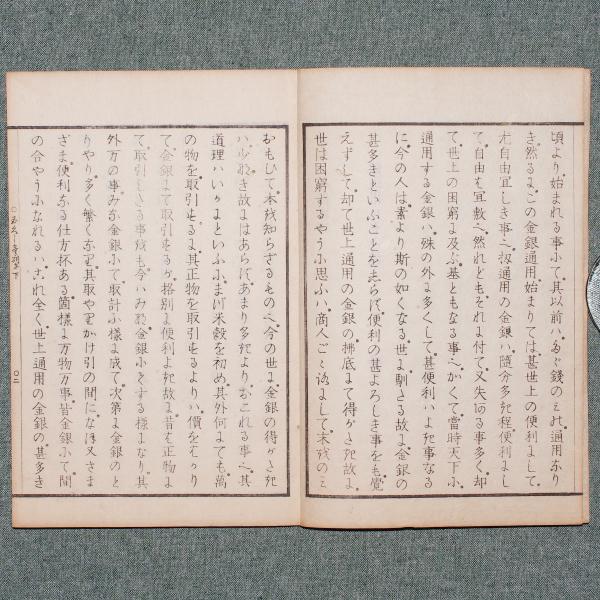 頃より始まれる事ふて其以前ハたゞ錢のミ通用なり
き然るよこの金銀通用始まりては甚世上の便利よして
尤自由宜しき事へ扨通用の金銀ハ隨分多きほど便利よし
て自由は宜敷へ然れどもそれよ付て又失ある事多く却
て世上の困窮よ及ぶ基ともなる事へかくて當時天下ふ
通用する金銀ハ殊の外よ多くして甚便利ハよき事なる
に今の人は素より斯の如くなる世よ馴さる故よ金銀の
甚多きといふことをもしらず便利の甚よろしき事をも覺
えずして却て世上通用の金銀の拂底よて得がたき故よ
世は困窮するやうふ思ふハ商人ごゝろよして末のミ
おもひて本を知らざるものへ今の世よ金銀の得がたき
ハ少き故よはあらずあまり多きよりおこれる事へ其
道理ハいかよといふふまづ米穀を初め其外何よても萬
の物を取引するよ其正物を取引するよりハ價をはかり
て金銀よて取引するが格別よ便利よき故よ昔は正物よ
て取引したる事をも今ハみな金銀ふてする樣よなり其
外万の事みな金銀ふて取計ふ樣よ成て次第よ金銀のと
りやり多く繁くなり其取やりかけ引の間になほ又さま
ざま便利なる仕方抔ある箇樣よ万物万事皆金銀ふて間
の合やうふなれるハこれ全く世上通用の金銀の甚多き